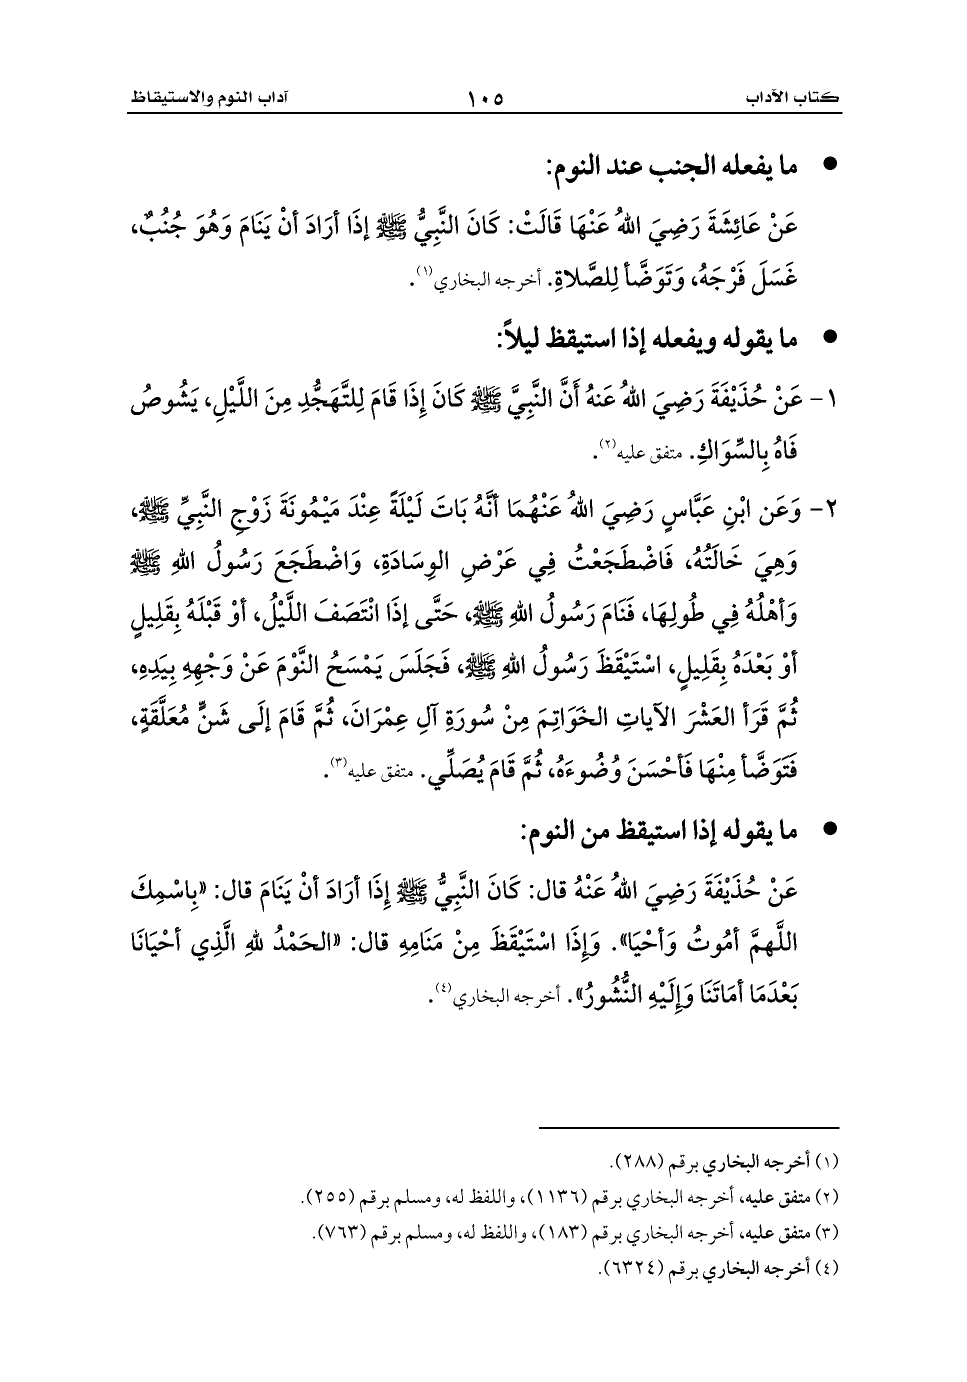 كتاب الآداب ١٠٥ آداب النوم والاستيقاظ
● ما يفعله الجنب عند النوم:
عَنْ عَائِشَةَ رَضِيَ اللهُ عَنْهَا قَالَتْ: كَانَ النَّبِيُّ ﷺ إذَا أرَادَ أنْ يَنَامَ وَهُوَ جُنُبٌ،
غَسَلَ فَرْجَهُ، وَتَوَضَّأ لِلصَّلاةِ. أخرجه البخاري(١).
● ما يقوله ويفعله إذا استيقظ ليلاً:
١- عَنْ حُذَيْفَةَ رَضِيَ اللهُ عَنهُ أَنَّ النَّبِيَّ ﷺ كَانَ إِذَا قَامَ لِلتَّهَجُّدِ مِنَ اللَّيْلِ، يَشُوصُ
فَاهُ بِالسِّوَاكِ. متفق عليه(٢).
٢- وَعَن ابْنِ عَبَّاسٍ رَضِيَ اللهُ عَنْهُمَا أنَّهُ بَاتَ لَيْلَةً عِنْدَ مَيْمُونَةَ زَوْجِ النَّبِيِّ ﷺ،
وَهِيَ خَالَتُهُ، فَاضْطَجَعْتُ فِي عَرْضِ الوِسَادَةِ، وَاضْطَجَعَ رَسُولُ اللهِ ﷺ
وَأهْلُهُ فِي طُولِهَا، فَنَامَ رَسُولُ اللهِ ﷺ، حَتَّى إذَا انْتَصَفَ اللَّيْلُ، أوْ قَبْلَهُ بِقَلِيلٍ
أوْ بَعْدَهُ بِقَلِيلٍ، اسْتَيْقَظَ رَسُولُ اللهِ ﷺ، فَجَلَسَ يَمْسَحُ النَّوْمَ عَنْ وَجْهِهِ بِيَدِهِ،
ثُمَّ قَرَأ العَشْرَ الآيَاتِ الخَوَاتِمَ مِنْ سُورَةِ آلِ عِمْرَانَ، ثُمَّ قَامَ إلَى شَنٍّ مُعَلَّقَةٍ،
فَتَوَضَّأ مِنْهَا فَأحْسَنَ وُضُوءَهُ، ثُمَّ قَامَ يُصَلِّي. متفق عليه(٣).
● ما يقوله إذا استيقظ من النوم:
عَنْ حُذَيْفَةَ رَضِيَ اللهُ عَنْهُ قال: كَانَ النَّبِيُّ ﷺ إِذَا أرَادَ أنْ يَنَامَ قال: «بِاسْمِكَ
اللَّهمَّ أمُوتُ وَأحْيَا». وَإِذَا اسْتَيْقَظَ مِنْ مَنَامِهِ قال: «الحَمْدُ للهِ الَّذِي أحْيَانَا
بَعْدَمَا أمَاتَنَا وَإِلَيْهِ النُّشُورُ». أخرجه البخاري(٤).
(١) أخرجه البخاري برقم (٢٨٨).
(٢) متفق عليه، أخرجه البخاري برقم (١١٣٦)، واللفظ له، ومسلم برقم (٢٥٥).
(٣) متفق عليه، أخرجه البخاري برقم (١٨٣)، واللفظ له، ومسلم برقم (٧٦٣).
(٤) أخرجه البخاري برقم (٦٣٢٤).